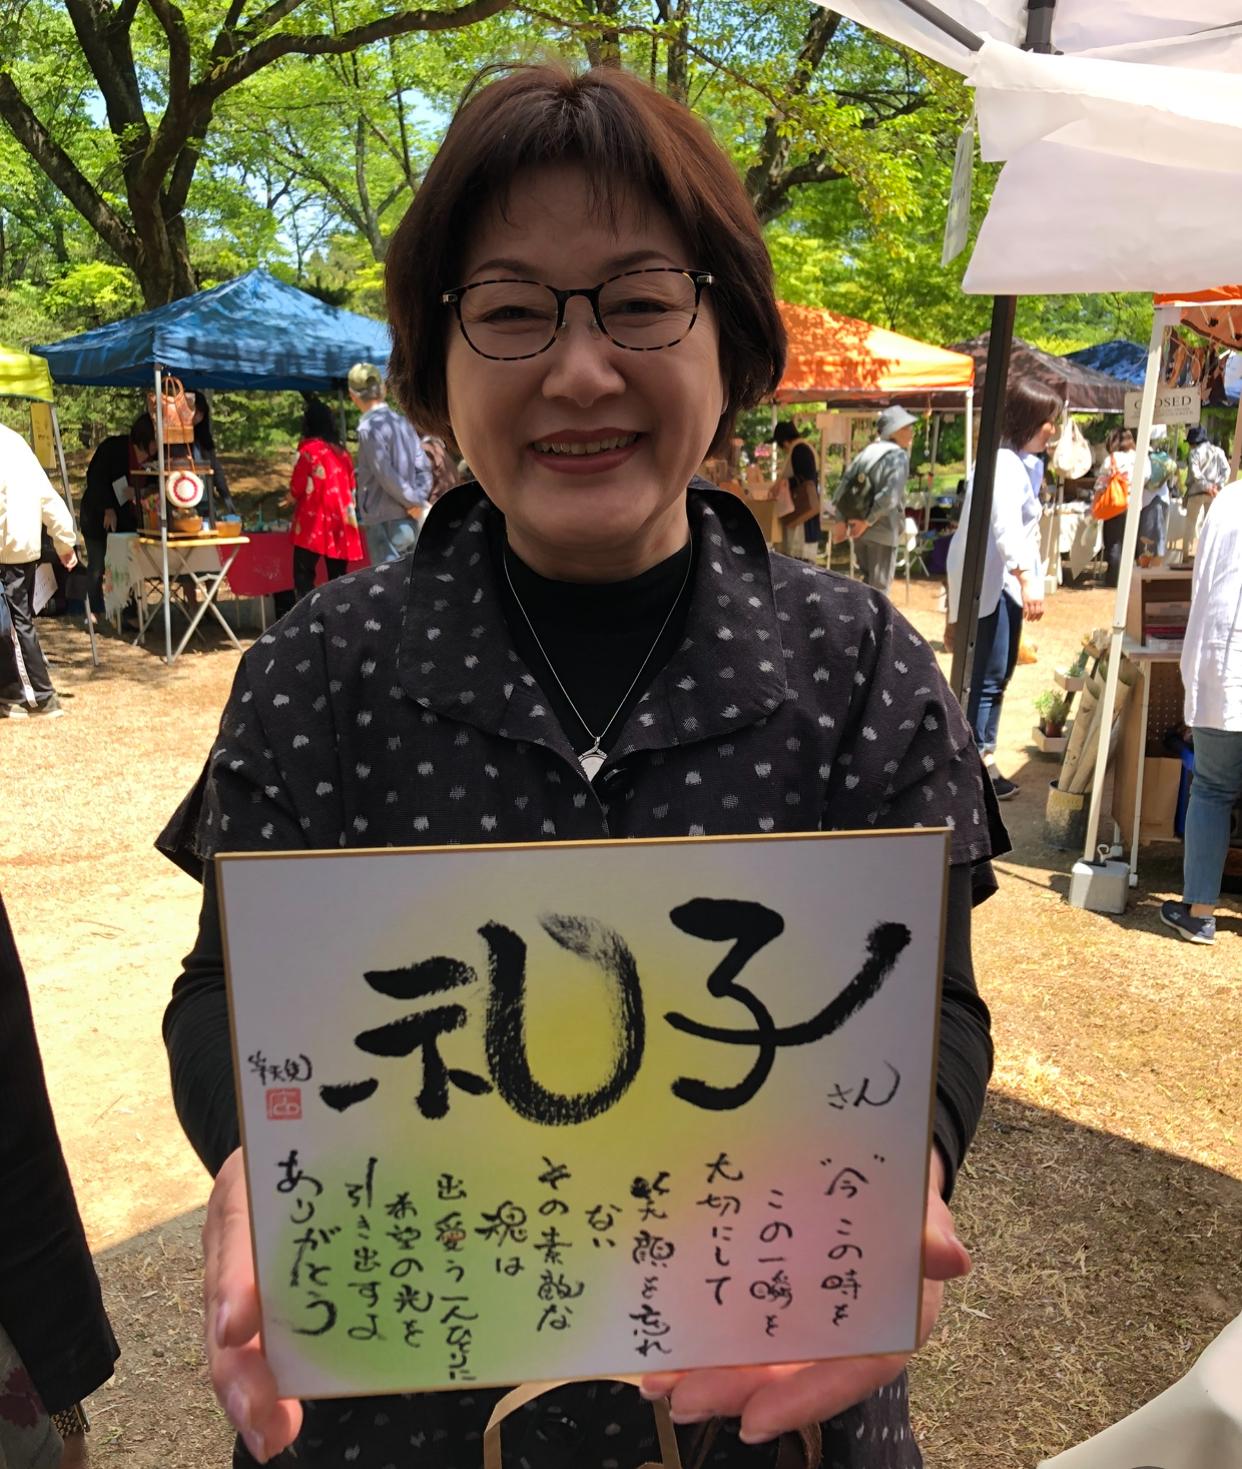 礼子
さん
"今"この時を
この一瞬を
大切にして
笑顔を忘れ
ない
その素敵な
魂は
出愛う一人ひとりに
希望の光を
引き出すよ
ありがとう
CLOSED